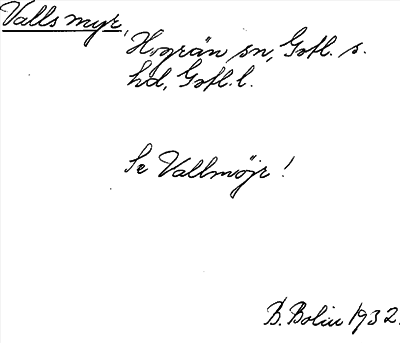 Valls myr,
Hogrän sn, Gotl. s.
hd, Gotl. l.
Se Vallmöjr!
D. Bolin 1932.